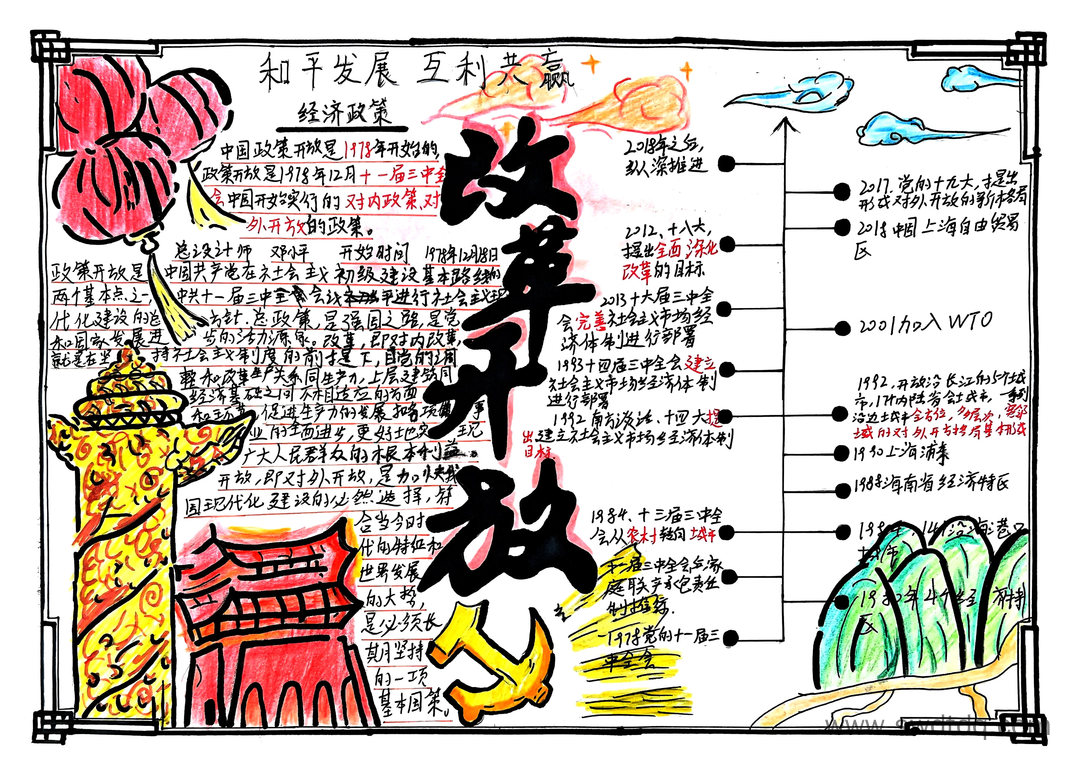 和平发展 互利共赢
经济政策
中国政策开放是1978年开始的
政策开放是1978年12月十一届三中全
会中国开始实行的对内政策、对
外开放的政策。
总设计师 邓小平 开始时间 1978年12月18日
政策开放是中国共产党在社会主义初级建设基本路线的
两个基本点之一,中共十一届三中全会会议
进行社会主义现
代化建设的总方针、总政策,是强国之路,是党
和国家发展进步的活力源泉。改革,即对内改革,
就是在坚持社会主义制度的前提下,自觉的调
整和改革生产关系同生产力,上层建筑同
经济基础之间不相适应的方面
和环节,促进生产力的发展和各项
事
业的全面进步,更好地实现
广大人民群众的根本利益
开放,即对外开放,是加快我
国现代化建设的必然选择,符
合当今时
代的特征和
世界发展
的大势,
是必须长
期坚持
的一项
基本国策。
改革开放
2018年之后,
纵深推进
2012、十八大,
提出全面深化
改革的目标
2013十六届三中全
会完善社会主义市场经
济体制进行部署
1993十四届三中全会建立
社会主义市场经济体制
进行部署
1992南方谈话、十四大提
出建立社会主义市场经济体制
目标
1984、十三届三中全
会从农村转向城市
十一届三中全会后家
庭联产承包责任
制推广.
1978党的十一届三
中全会
2017.党的十九大,提出
形成对外开放的新格局
2013中国上海自由贸易
区
2001加入WTO
1992,开放沿长江的5个城
市,17个内陆省会城市,
沿边城市全方位,多层次,宽领
域的对外开放格局基本形成
1990上海浦东
1988海南省经济特区
1984、14个沿海港口
城市
1980年4个经济特
区